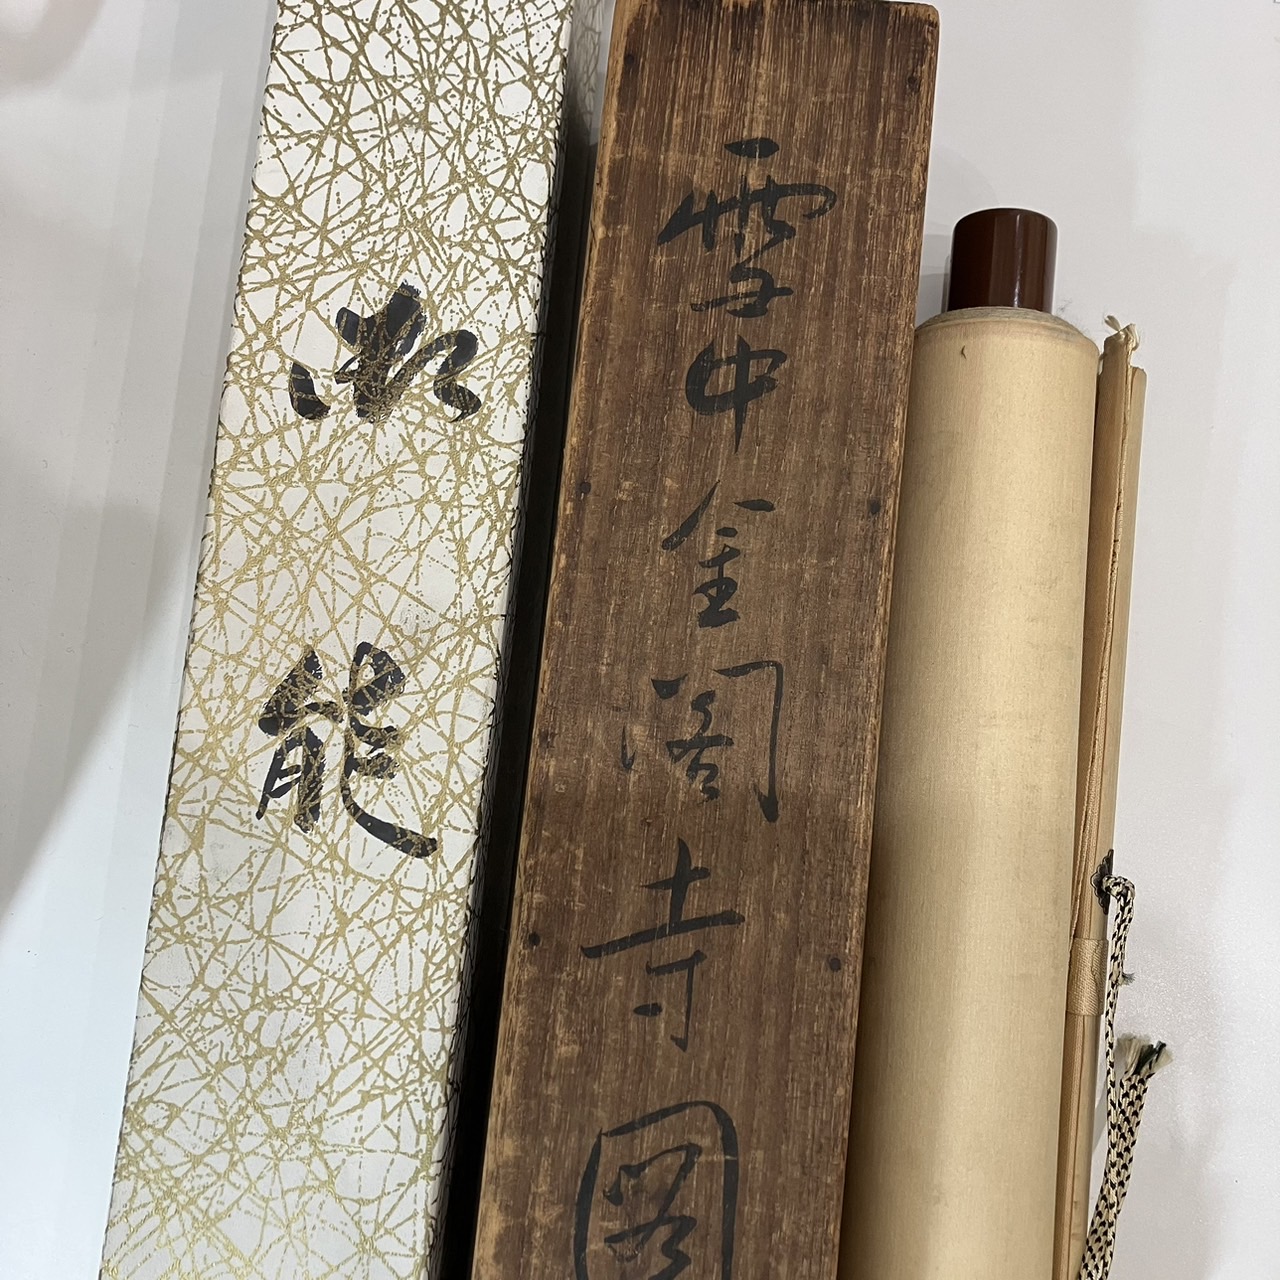 雪中金閣寺図
能